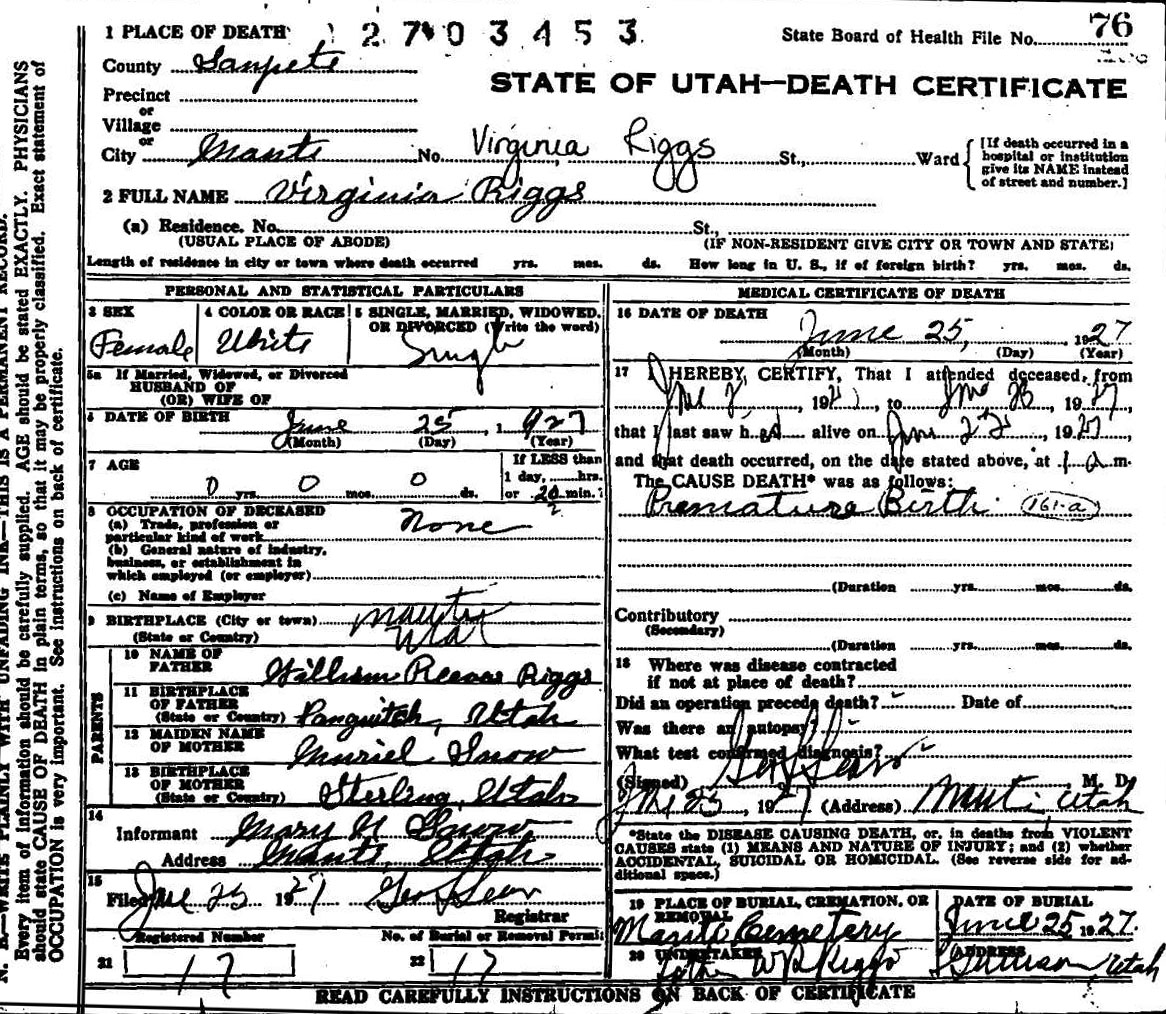 1 PLACE OF DEATH 2703453 State Board of Health File No. 76
County Sanpete
STATE OF UTAH—DEATH CERTIFICATE
Precinct
or
Village
or
City Manti No. Virginia Riggs St., Ward [If death occurred in a hospital or institution give its NAME instead of street and number.]
2 FULL NAME Virginia Riggs
(a) Residence. No. St.,
(USUAL PLACE OF ABODE) (IF NON-RESIDENT GIVE CITY OR TOWN AND STATE)
Length of residence in city or town where death occurred yrs. mos. ds. How long in U. S., if of foreign birth? yrs. mos. ds.
PERSONAL AND STATISTICAL PARTICULARS
3 SEX
Female
4 COLOR OR RACE
White
5 SINGLE, MARRIED, WIDOWED,
OR DIVORCED (Write the word)
Single
5a If Married, Widowed, or Divorced
HUSBAND OF
(OR) WIFE OF
6 DATE OF BIRTH June 25 1927
(Month) (Day) (Year)
7 AGE
0 yrs. 0 mos. 0 ds.
If LESS than
1 day, hrs.
or 20 min.?
8 OCCUPATION OF DECEASED
(a) Trade, profession or
particular kind of work None
(b) General nature of industry,
business, or establishment in
which employed (or employer)
(c) Name of Employer
9 BIRTHPLACE (City or town) Manti
(State or Country) Utah
PARENTS
10 NAME OF
FATHER William Reeves Riggs
11 BIRTHPLACE
OF FATHER
(State or Country) Panguitch, Utah
12 MAIDEN NAME
OF MOTHER Muriel Snow
13 BIRTHPLACE
OF MOTHER
(State or Country) Sterling, Utah
14
Informant Mary N Snow
Address Manti, Utah
15
Filed June 25 1927
Registrar
Registered Number No. of Burial or Removal Permit
21 17 22 17
MEDICAL CERTIFICATE OF DEATH
16 DATE OF DEATH
June 25, 1927
(Month) (Day) (Year)
17 I HEREBY CERTIFY, That I attended deceased from
, 19 , to , 1927,
that I last saw h alive on June , 1927,
and that death occurred, on the date stated above, at 1 a m.
The CAUSE DEATH* was as follows:
Premature Birth 161-a
(Duration yrs. mos. ds.
Contributory
(Secondary)
(Duration yrs. mos. ds.
18 Where was disease contracted
if not at place of death?
Did an operation precede death? Date of
Was there an autopsy?
What test confirmed diagnosis?
(Signed) M. D.
June 25, 1927 (Address) Manti, Utah
*State the DISEASE CAUSING DEATH, or, in deaths from VIOLENT
CAUSES state (1) MEANS AND NATURE OF INJURY; and (2) whether
ACCIDENTAL, SUICIDAL OR HOMICIDAL. (See reverse side for ad-
ditional space.)
19 PLACE OF BURIAL, CREMATION, OR
REMOVAL
Manti Cemetery
DATE OF BURIAL
June 25 1927.
20 UNDERTAKER
W R Riggs
ADDRESS
Utah
READ CAREFULLY INSTRUCTIONS ON BACK OF CERTIFICATE
N. B.—WRITE PLAINLY WITH UNFADING INK—THIS IS A PERMANENT RECORD.
Every item of information should be carefully supplied. AGE should be stated EXACTLY. PHYSICIANS
should state CAUSE OF DEATH in plain terms, so that it may be properly classified. Exact statement of
OCCUPATION is very important. See instructions on back of certificate.